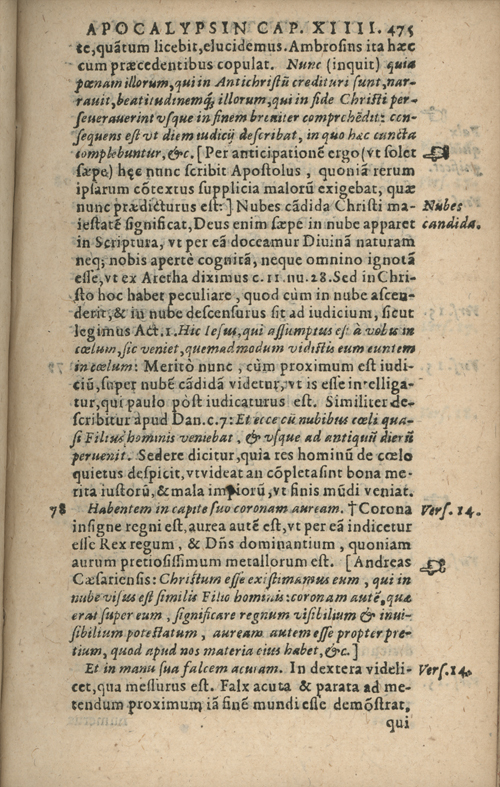 APOCALYPSIN CAP. XIIII. 475
te, quãtum licebit, elucidemus. Ambrosius ita hæc
cum præcedentibus copulat. Nunc (inquit) quia
pœnam illorum, qui in Antichristũ credituri sunt, nar-
rauit, beatitudinemq́; illorum, qui in fide Christi per-
seuerauerint vsque in finem breuiter comprehẽdit: con-
sequens est vt diem iudicij describat, in quo hæc cuncta
complebuntur, &c. [Per anticipationẽ ergo (vt solet
sæpe) hęc nunc scribit Apostolus, quoniã rerum
ipsarum cõtextus supplicia malorũ exigebat, quæ
nunc prædicturus est:] Nubes cãdida Christi ma-
Nubes
iestatẽ significat, Deus enim sæpè in nube apparet
candida.
in Scriptura, vt per eã doceamur Diuinã naturam
neq; nobis apertè cognitã, neque omnino ignotã
esse, vt ex Aretha diximus c. 11. nu. 28. Sed in Chri-
sto hoc habet peculiare, quod cùm in nube ascen-
derit, & in nube descensurus sit ad iudicium, sicut
legimus Act. 1. Hic Iesus, qui assumptus est à vobis in
cœlum, sic veniet, quemadmodum vidistis eum euntem
in cœlum: Meritò nunc, cùm proximum est iudi-
ciũ, super nubẽ cãdidã videtur, vt is esse intelliga-
tur, qui paulo pòst iudicaturus est. Similiter de-
scribitur apud Dan. c. 7: Et ecce cũ nubibus cœli qua-
si Filius hominis veniebat, & vsque ad antiquũ dierũ
peruenit. Sedere dicitur, quia res hominũ de cœlo
quietus despicit, vt videat an cõpleta sint bona me-
rita iustorũ, & mala impiorũ, vt finis mũdi veniat.
78 Habentem in capite suo coronam auream. † Corona
Vers. 14.
insigne regni est, aurea autẽ est, vt per eã indicetur
esse Rex regum, & Dñs dominantium, quoniam
aurum pretiosissimum metallorum est. [Andreas
Cæsariensis: Christum esse existimamus eum, qui in
nube visus est similis Filio hominis: coronam autẽ, quæ
erat super eum, significare regnum visibilium & inui-
sibilium potestatum, auream autem esse propter pre-
tium, quod apud nos materia eius habet, &c.]
Et in manu sua falcem acutam. In dextera videli-
Vers. 14.
cet, qua messurus est. Falx acuta & parata ad me-
tendum proximum iã finẽ mundi esse demõstrat,
qui